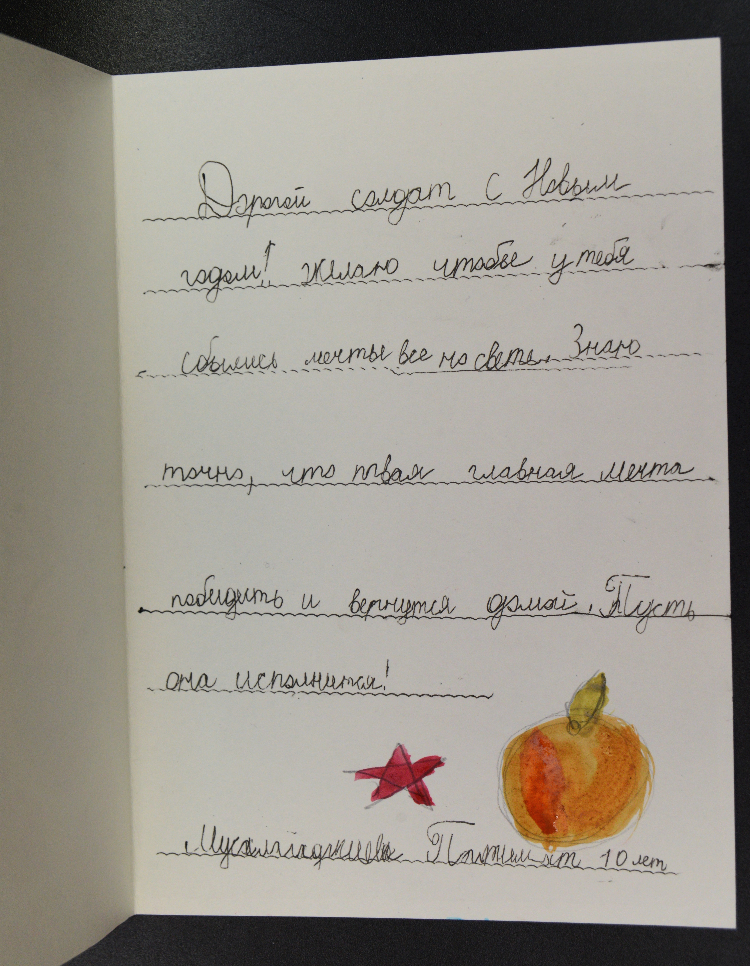 Дорогой солдат с Новым
годом! Желаю чтобы у тебя
сбылись мечты все на свете. Знаю
точно, что твоя главная мечта
победить и вернутся домой. Пусть
она исполнится!
Патимат 10 лет